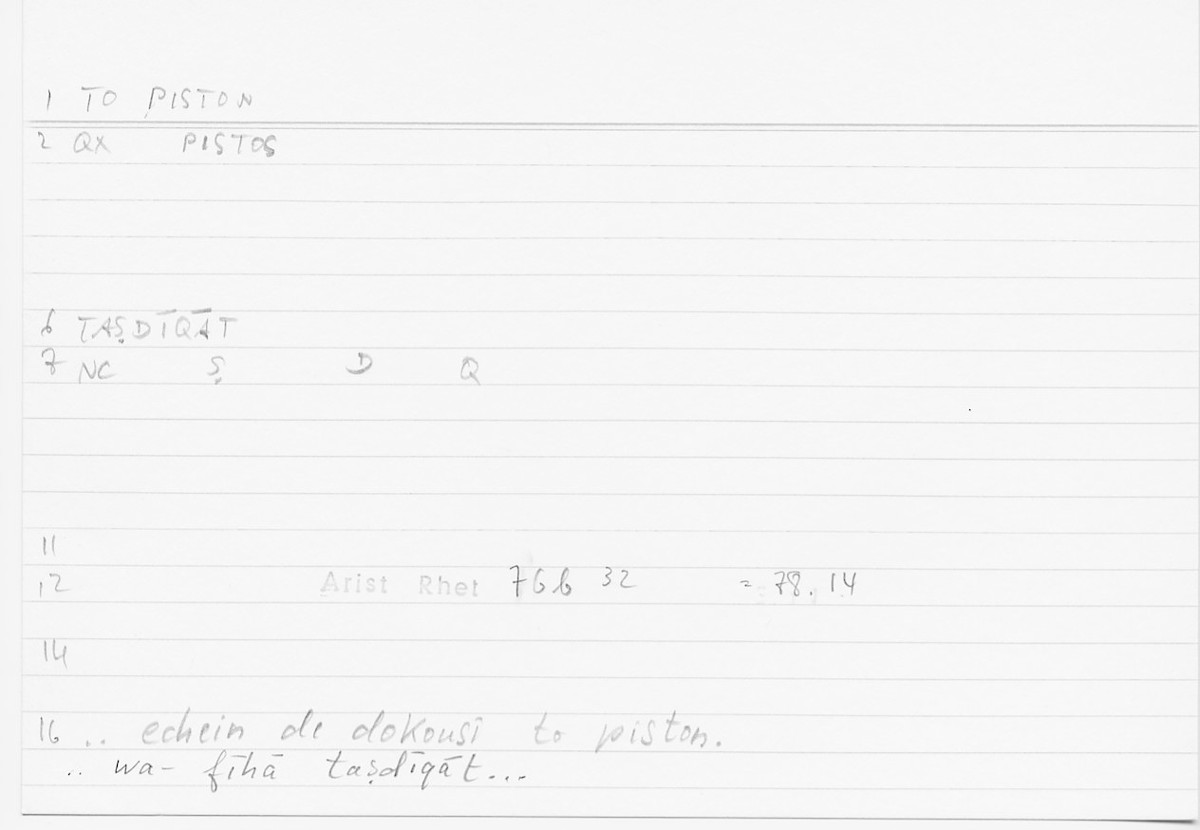 1 TO PISTON
2 QX PISTOS
6 TAṢDĪQĀT
7 NC Ṣ D Q
11
12 Arist Rhet 76b 32 = 78.14
14
16 .. echein de dokousi to piston.
.. wa- fīhā taṣdīqāt...